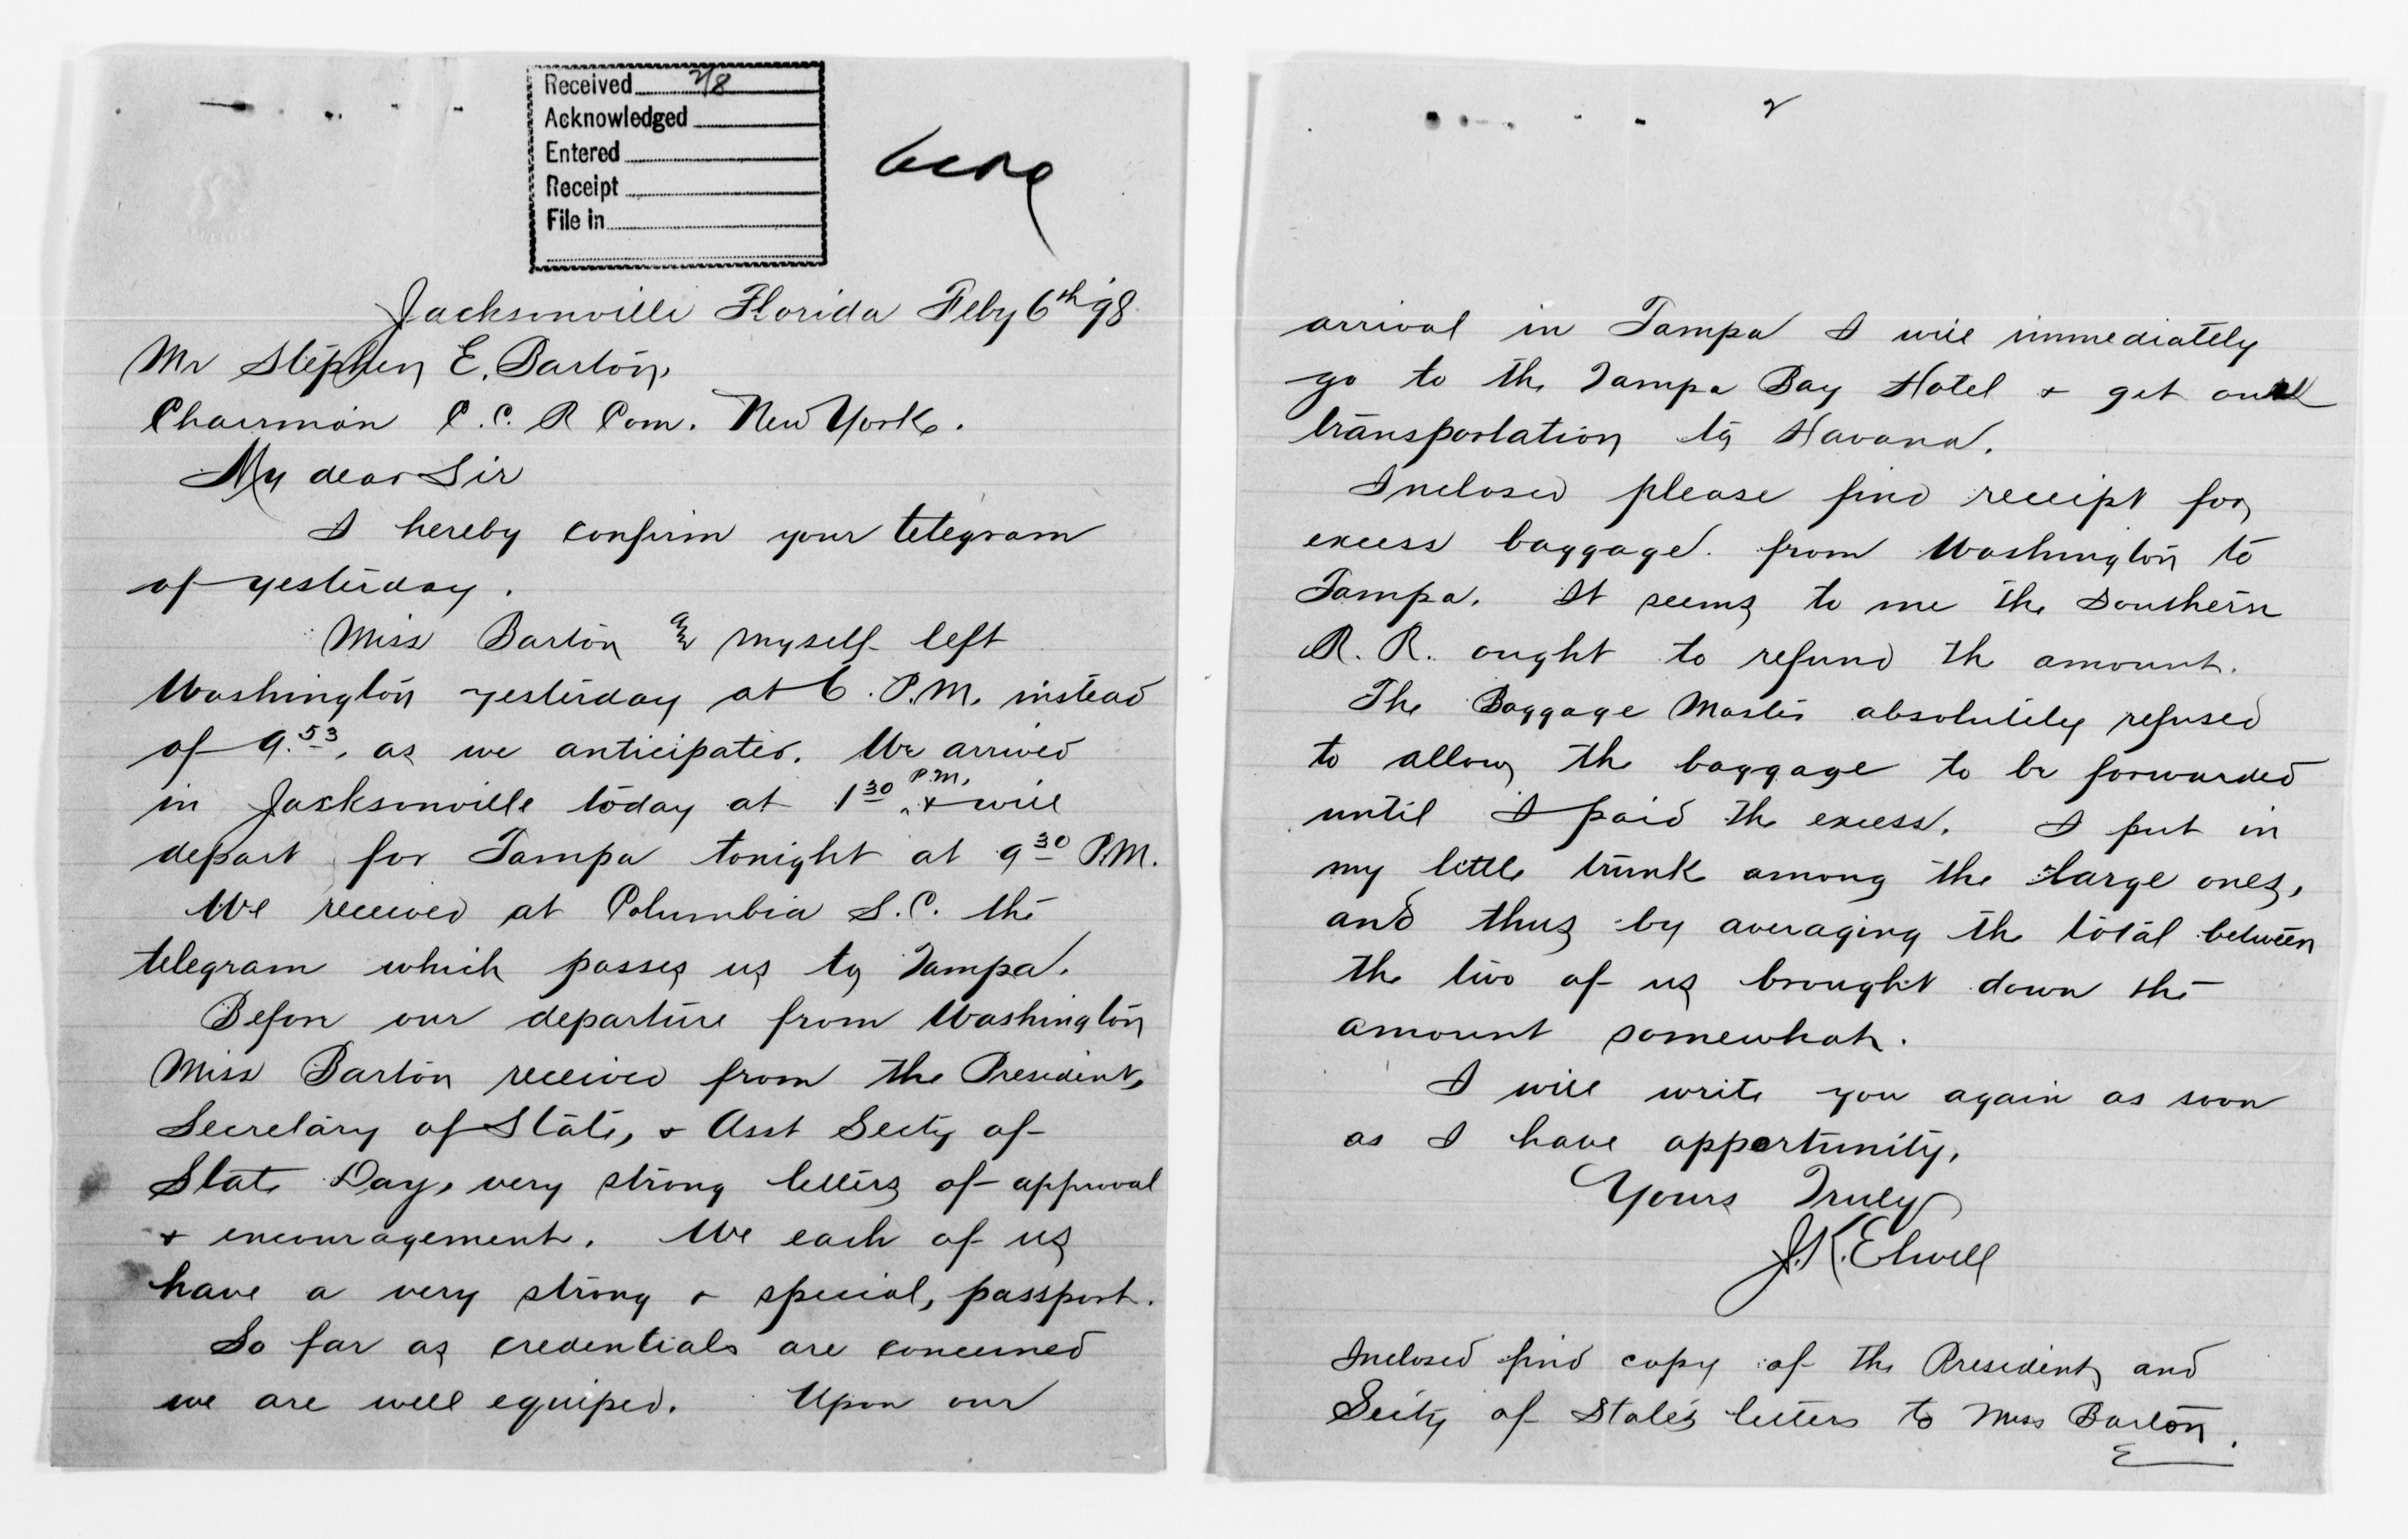 Received 2/8
Acknowledged
Entered
Receipt
File in
Jacksonville Florida Feby 6th '98
Mr Stephen E. Barton,
Chairman C. C. R Com. New York.
My dear Sir
I hereby confirm your telegram
of yesterday.
Miss Barton & myself left
Washington yesterday at 6. P.M. instead
of 9.53, as we anticipated. We arrived
in Jacksonville today at 1 30 P.M. & will
depart for Tampa tonight at 9 30 P.M.
We received at Columbia S.C. the
telegram which passes us to Tampa.
Before our departure from Washington
Miss Barton received from the President,
Secretary of State, & Asst Secty of
State Day, very strong letters of approval
& encouragement. We each of us
have a very strong & special, passport.
So far as credentials are concerned
we are well equiped. Upon our
2
arrival in Tampa I will immediately
go to the Tampa Bay Hotel & get our
transportation to Havana.
Inclosed please find receipt for
excess baggage. from Washington to
Tampa. It seems to me the Southern
R. R. ought to refund the amount.
The Baggage Master absolutely refused
to allow the baggage to be forwarded
until I paid the excess. I put in
my little trunk among the large ones,
and thus by averaging the total between
the two of us brought down the
amount somewhat.
I will write you again as soon
as I have opportunity.
Yours Truly
J. K. Elwell
Inclosed find copy of the Presidents and
Secty of State's letters to Miss Barton.
E